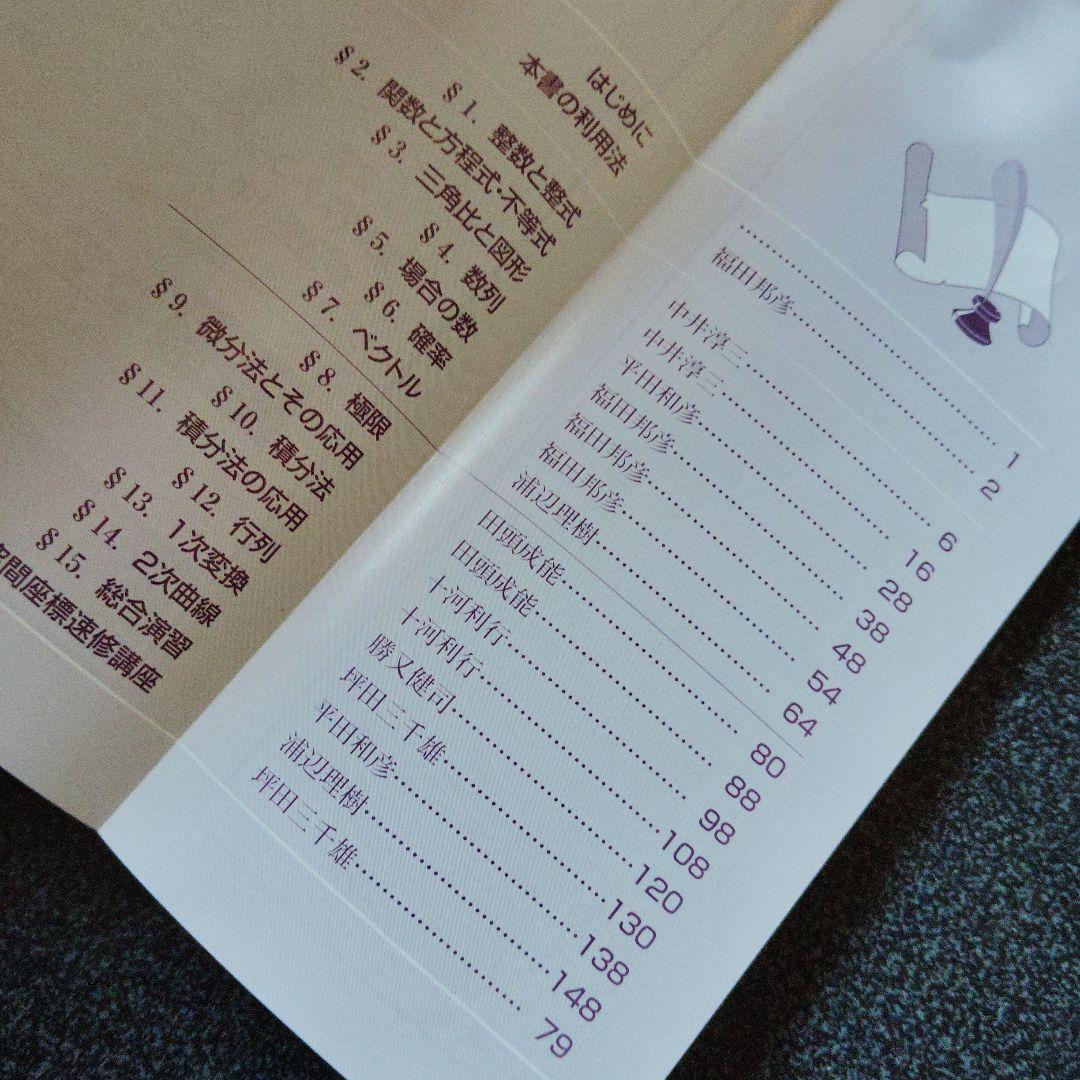 はじめに……………………1
本書の利用法 福田邦彦……………………2
§1. 整数と整式 中井淳三……………………6
§2. 関数と方程式・不等式 中井淳三……………………16
§3. 三角比と図形 平田和彦……………………28
§4. 数列 福田邦彦……………………38
§5. 場合の数 福田邦彦……………………48
§6. 確率 福田邦彦……………………54
§7. ベクトル 浦辺理樹……………………64
§8. 極限 田頭成能……………………80
§9. 微分法とその応用 田頭成能……………………88
§10. 積分法 十河利行……………………98
§11. 積分法の応用 十河利行……………………108
§12. 行列 勝又健司……………………120
§13. 1次変換 坪田三千雄……………………130
§14. 2次曲線 平田和彦……………………138
§15. 総合演習 浦辺理樹……………………148
間座標速修講座 坪田三千雄……………………79